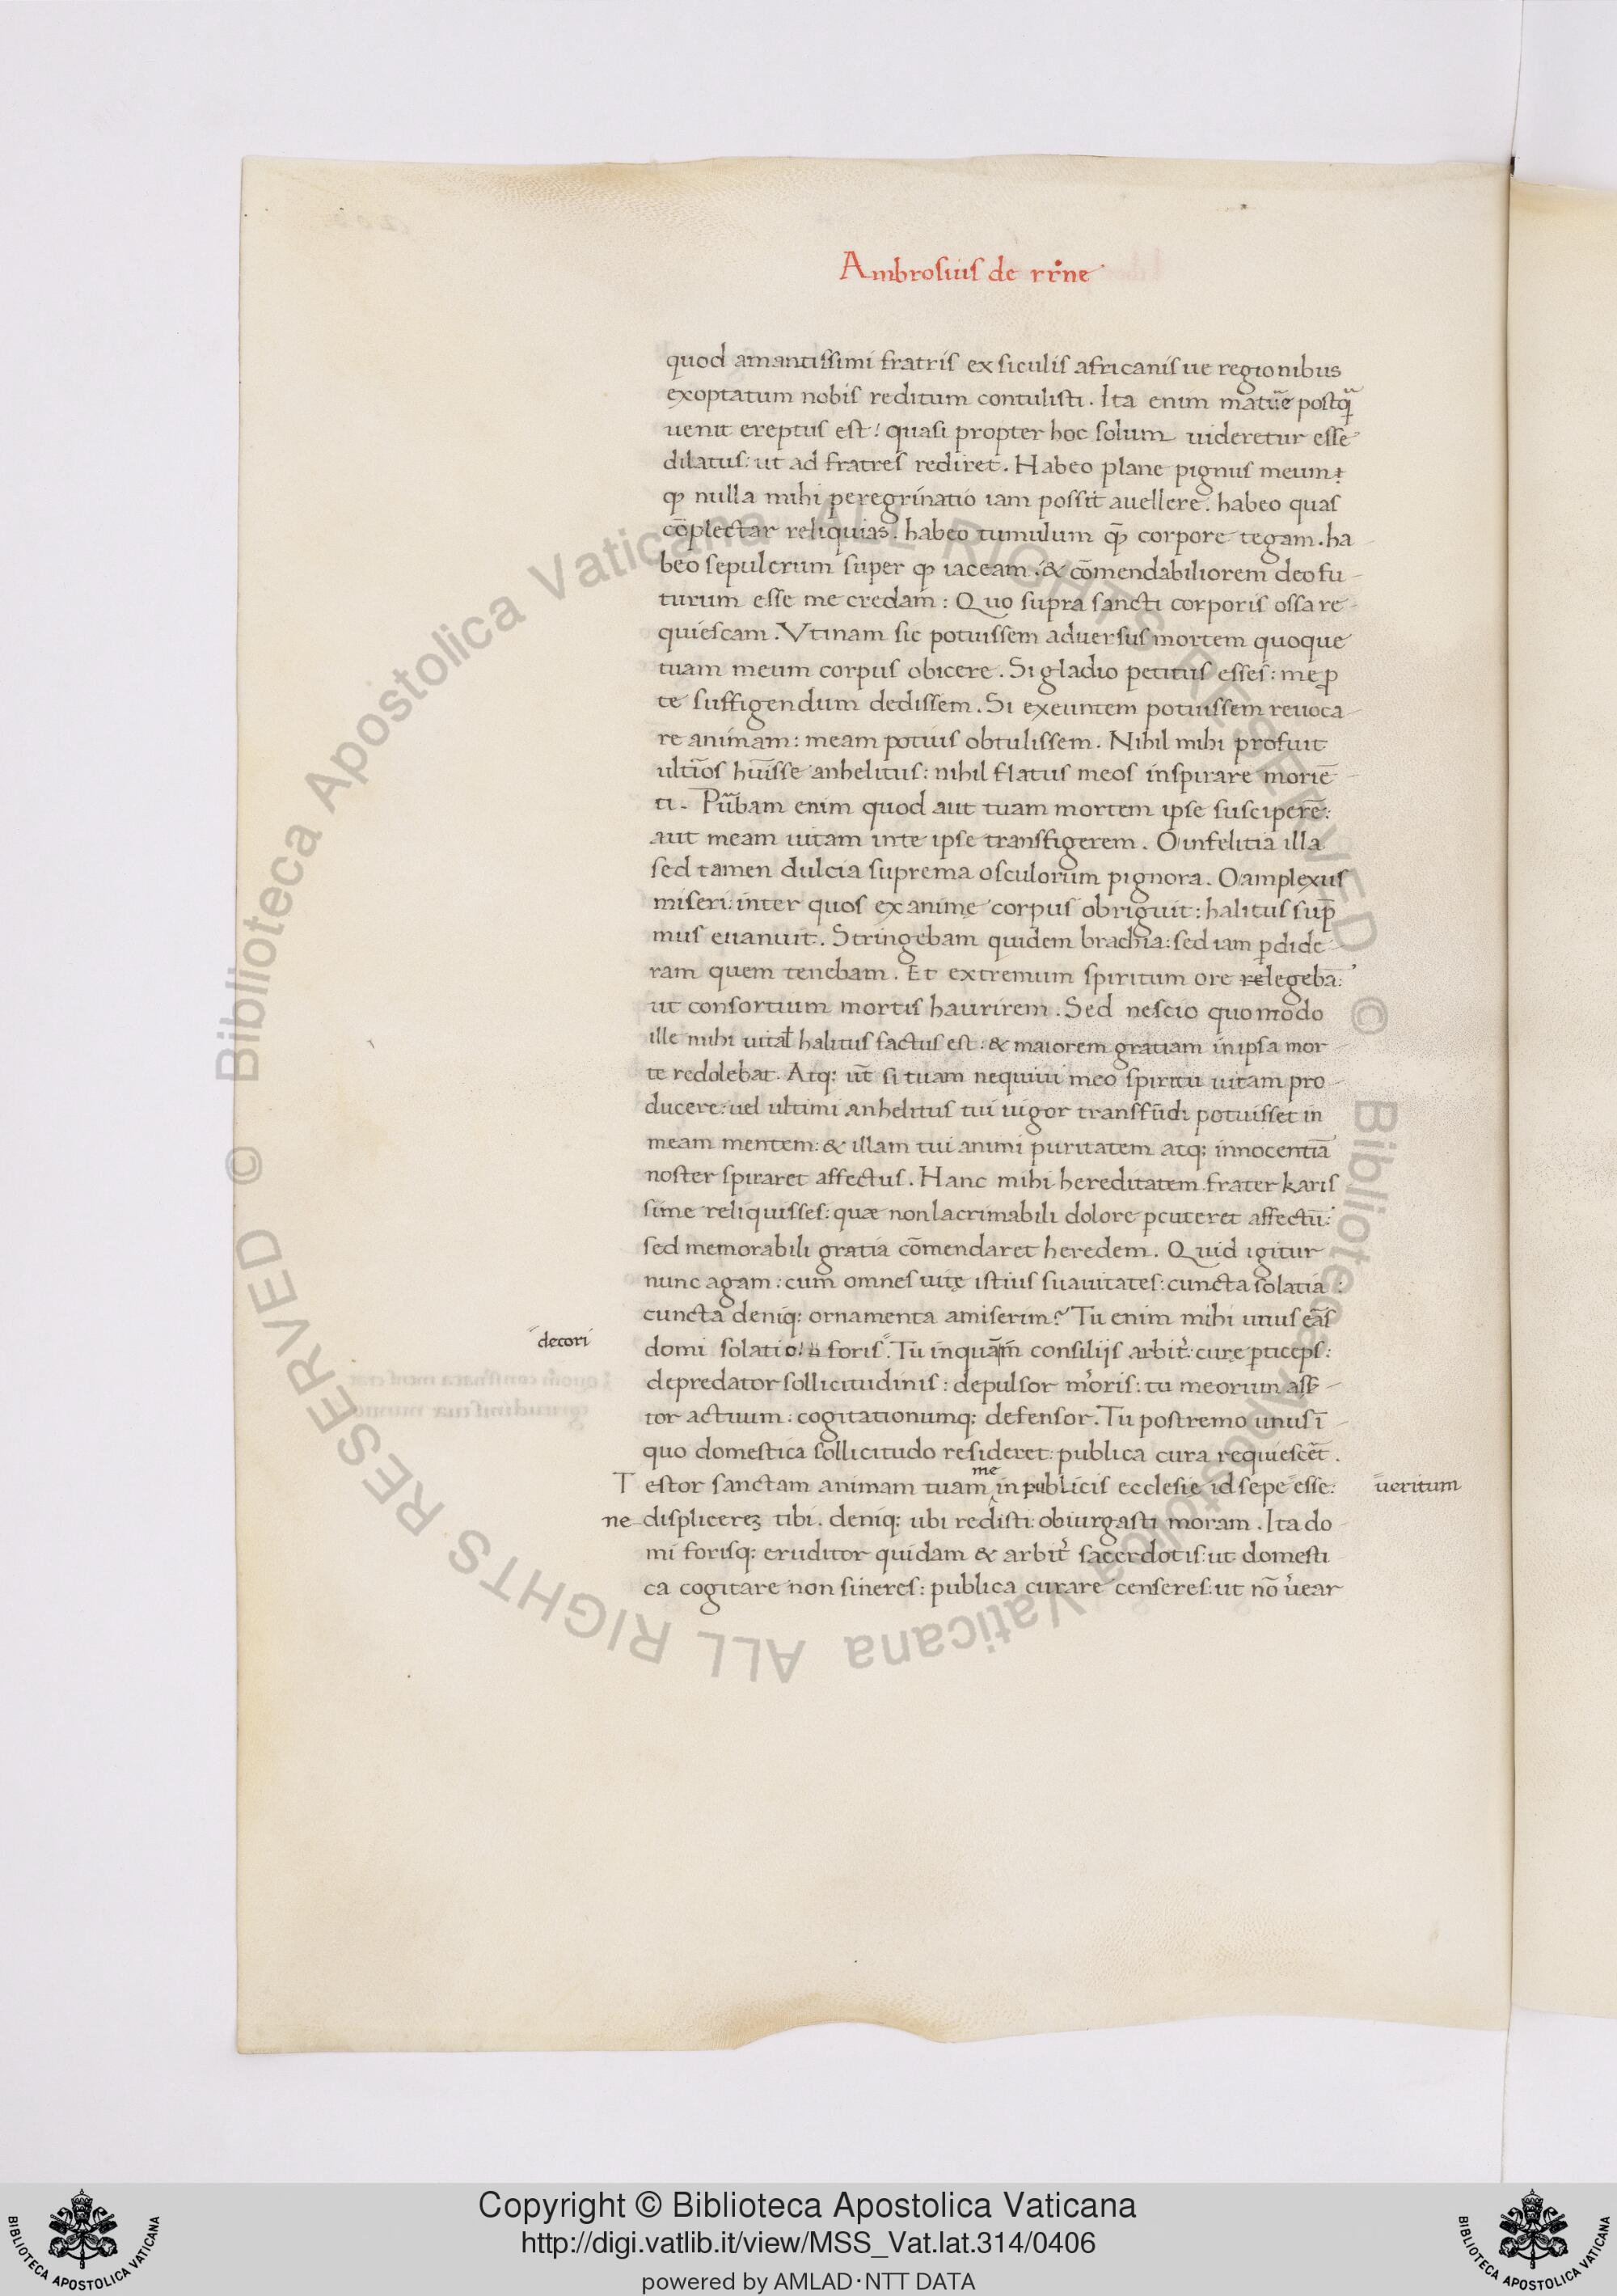 Ambrosius de rr̃ne
quod amantissimi fratris ex siculis africanis ue regionibus
exoptatum nobis reditum contulisti. Ita enim matũe postq̃
uenit ereptus est! quasi propter hoc solum uideretur esse
dilatus: ut ad fratres rediret. Habeo plane pignus meum:
qđ nulla mihi peregrinatio iam possit auellere. habeo quas
cõplectar reliquias. habeo tumulum quẽ corpore tegam. ha-
beo sepulcrum super qđ iaceam. & cõmendabiliorem deo fu-
turum esse me credam: Quo supra sancti corporis ossa re-
quiescam. Vtinam sic potuissem aduersus mortem quoque
tuam meum corpus obicere. Si gladio petitus esses: me ꝓ
te suffigendum dedissem. Si exeuntem potuissem reuoca-
re animam: meam potius obtulissem. Nihil mihi profuit
ultĩos hũisse anhelitus: nihil flatus meos inspirare moriẽ-
ti. Pũbam enim quod aut tuam mortem ipse susciperẽ:
aut meam uitam inte ipse transfigerem. O infelitia illa
sed tamen dulcia suprema osculorum pignora. O amplexus
miseri: inter quos exanime corpus obriguit: halitus sup̃
mus euanuit. Stringebam quidem brachia: sed iam ꝑdide-
ram quem tenebam. Et extremum spiritum ore relegebã:
ut consortium mortis haurirem. Sed nescio quomodo
ille mihi uital̃ halitus factus est: & maiorem gratiam in ipsa mor-
te redolebat. Atq: ut̃ si tuam nequiui meo spiritu uitam pro-
ducere: uel ultimi anhelitus tui uigor transfũdi potuisset in
meam mentem: & illam tui animi puritatem atq: innocentiã
noster spiraret affectus. Hanc mihi hereditatem frater karis
sime reliquisses: quæ non lacrimabili dolore ꝑcuteret affectũ:
sed memorabili gratia cõmendaret heredem. Quid igitur
nunc agam: cum omnes uitę istius suauitates: cuncta solatia:
cuncta deniq: ornamenta amiserim? Tu enim mihi unus eãs
decori
domi solatio! foris. Tu inquãm consilijs arbit̃: curę ꝑticeps:
depredator sollicitudinis: depulsor m̃oris: tu meorum ass̃-
tor actuum: cogitationumq: defensor. Tu postremo unus ĩ
quo domestica sollicitudo resideret: publica cura requiescẽt.
me
Testor sanctam animam tuam in publicis ecclesie id sepe esse: ueritum
ne displicereꝫ tibi. deniq: ubi redisti: obiurgasti moram. Ita do-
mi forisq: eruditor quidam & arbit̃ sacerdotis: ut domesti
ca cogitare non sineres: publica curare censeres: ut nõ ũear
© Biblioteca Apostolica Vaticana ALL RIGHTS RESERVED © Biblioteca Apostolica Vaticana ALL RIGHTS RESERVED
Copyright © Biblioteca Apostolica Vaticana
http://digi.vatlib.it/view/MSS_Vat.lat.314/0406
powered by AMLAD·NTT DATA
BIBLIOTECA APOSTOLICA VATICANA
BIBLIOTECA APOSTOLICA VATICANA